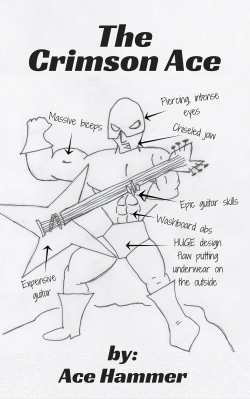 The
Crimson Ace
Piercing, intense
eyes
Massive biceps
Chiseled jaw
Epic guitar skills
Washboard abs
HUGE design
flaw putting
underwear on
the outside
Expensive
guitar
by:
Ace Hammer